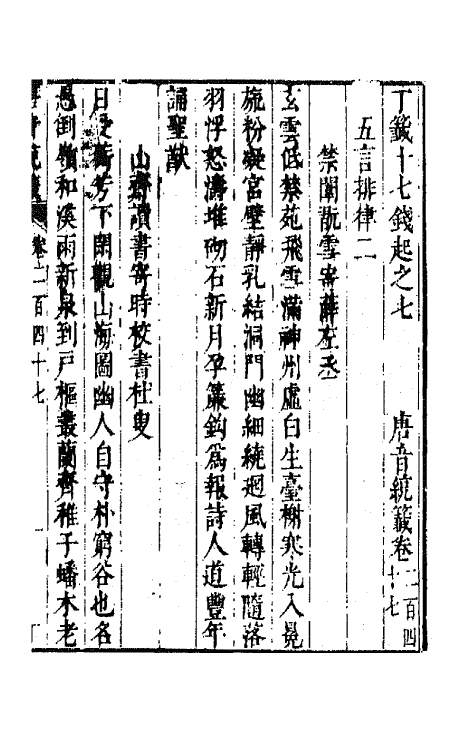 丁籤十七錢起之七　唐音統籤卷二百四十七
五言排律二
禁闈翫雪寄薛左丞
玄雲低禁苑飛雪滿神州虛白生臺榭寒光入冕
旒粉凝宮壁靜乳結洞門幽細繞迴風轉輕隨落
羽浮怒濤堆砌石新月孕簾鉤爲報詩人道豐年
誦聖猷
山齋讀書寄時校書杜叟
日愛蘅茅下閑觀山海圖幽人自守朴窮谷也名
愚倒嶺和溪雨新泉到戶樞叢蘭齊稚子蟠木老
卷二百四十七